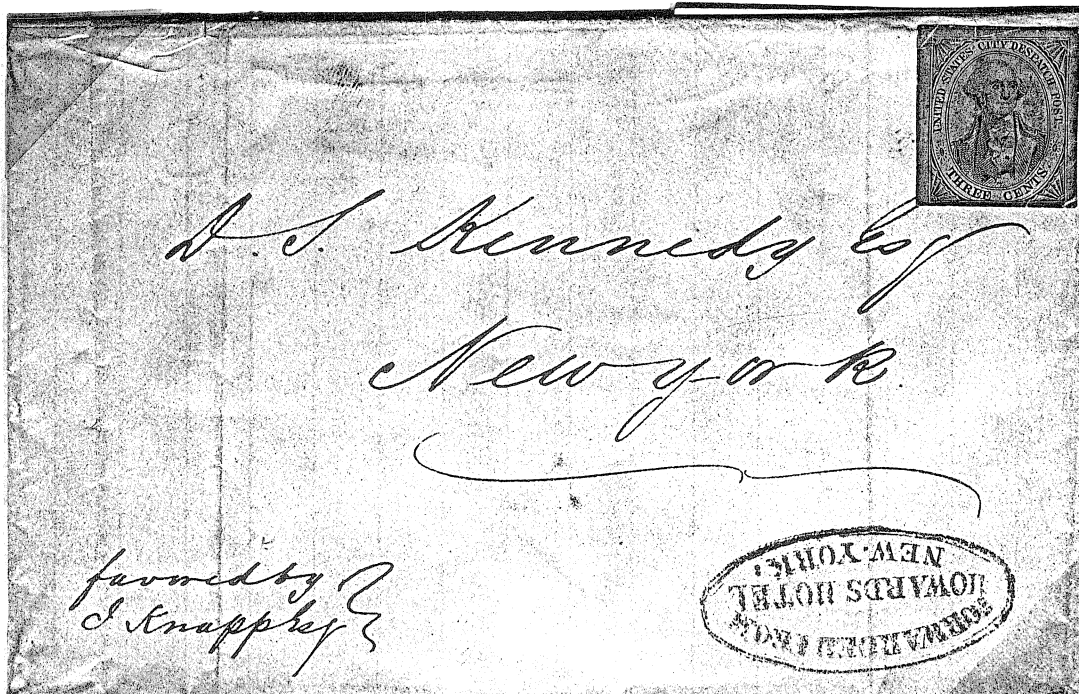 UNITED STATES CITY DESPATCH POST
THREE CENTS
D. S. Kennedy Esq
New york
favored by
J Knapp Esq
FORWARDED FROM
HOWARDS HOTEL
NEW-YORK.